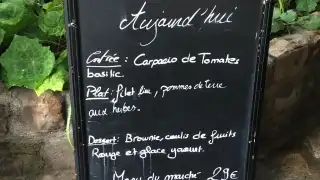 Aujourd'hui
Entrée : Carpacio de Tomates
basilic.
Plat : filet bar, pommes de terre
aux herbes.
Dessert : Brownie, coulis de fruits
Rouge et glace yaourt.
Menu du marché 29€